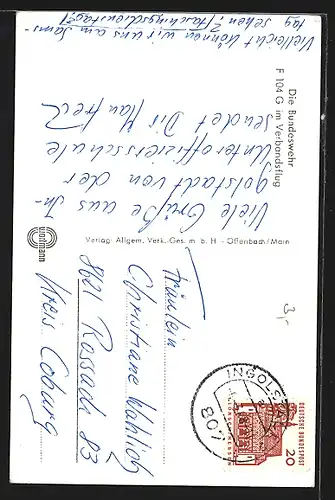 Vielleicht können wir uns am Sams-
tag sehen? (Faschingsdienstag?)
Die Bundeswehr
F 104 G im Verbandsflug
Viele Grüße aus In-
golstadt von der
Unteroffiziersschule
sendet Dir Manfred
Verlag: Allgem. Verk.-Ges. m. b. H - Offenbach/Main
Fräulein
Christiane Wahlich
8621 Rossach 83
Kreis Coburg
INGOLSTADT
DEUTSCHE BUNDESPOST
20